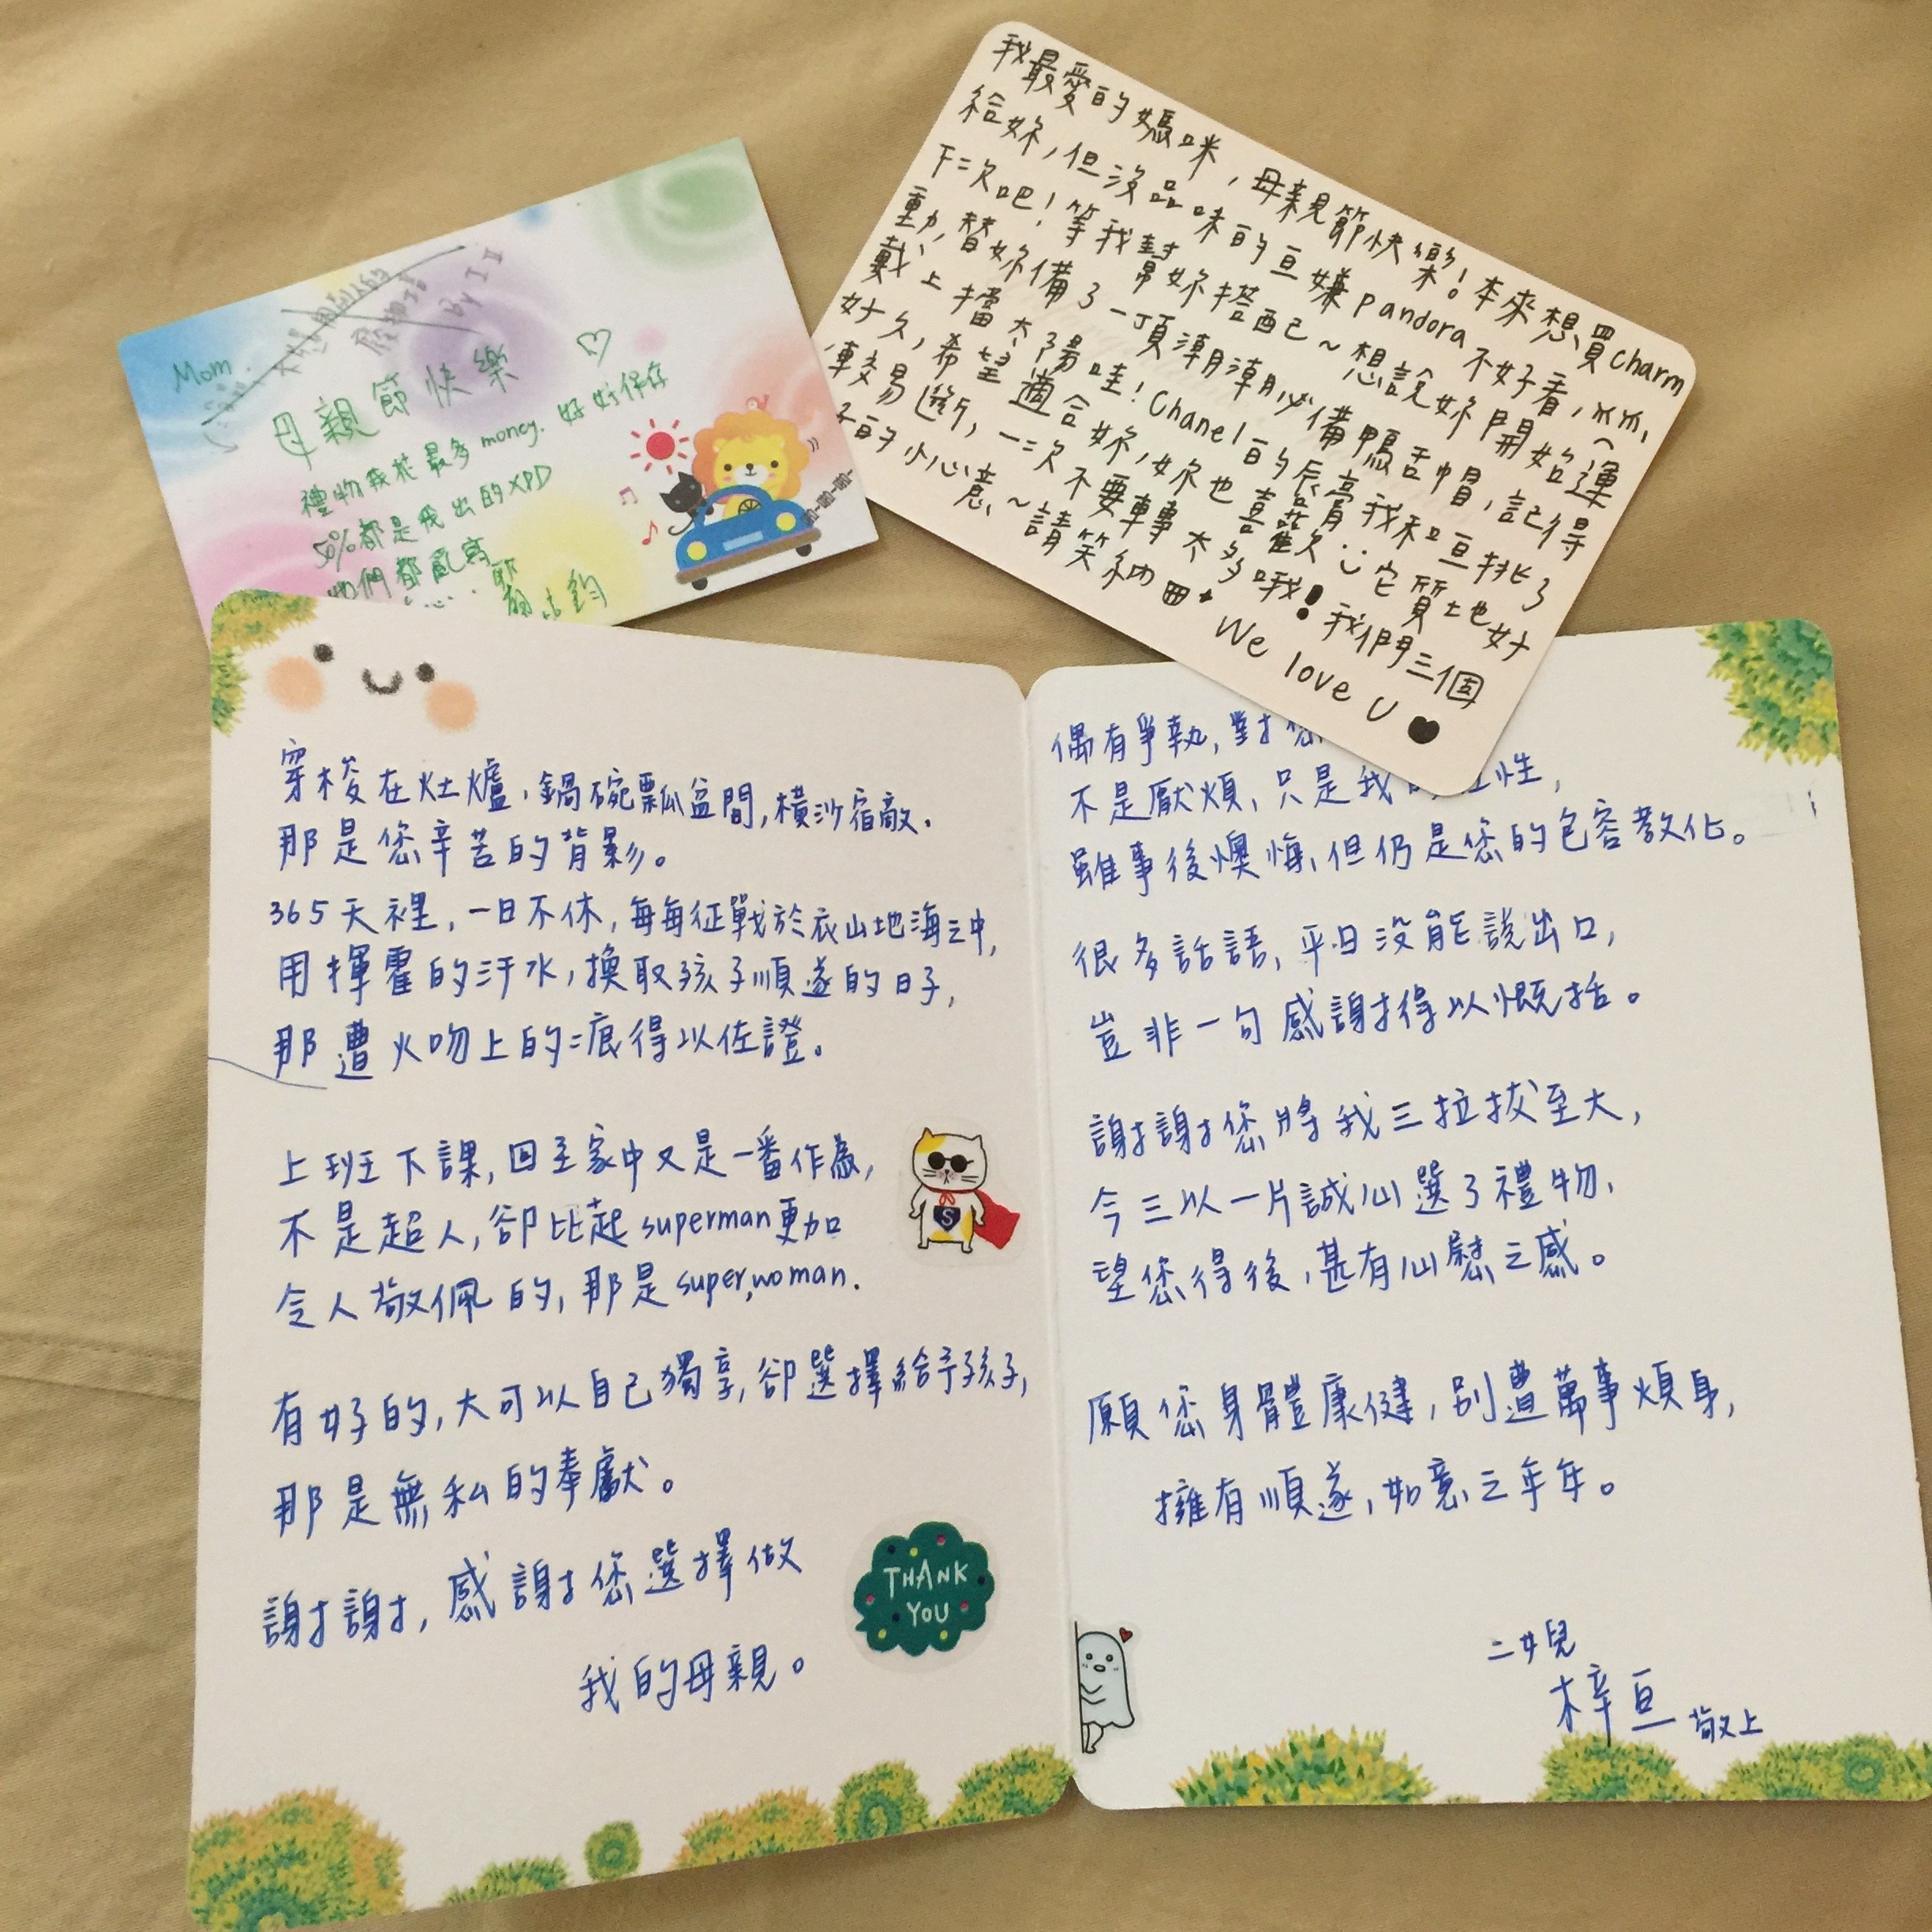 Mom
母親節快樂
禮物我花最多money. 好好保存
50%都是我出的XPD
他們都亂寫
我最愛的媽咪，母親節快樂！本來想買charm
給妳，但沒品味的豆嫌pandora不好看，
下次吧！等我幫妳搭配～想說妳開始運
動，替妳備了一頂潮潮必備鴨舌帽，記得
戴上擋太陽哇！Chanel的唇膏我和豆挑了
好久，希望適合妳，妳也喜歡 它質地好
軟易斷，一次不要轉太多哦！我們三個
的小心意～請笑納
We love U
穿梭在灶爐，鍋碗瓢盆間，橫沙宿敵，
那是您辛苦的背影。
365天裡，一日不休，每每征戰於衣山地海之中，
用揮霍的汗水，換取孩子順遂的日子，
那遭火吻上的痕得以佐證。
上班下課，回至家中又是一番作為，
不是超人，卻比起superman更加
令人敬佩的，那是superwoman.
有好的，大可以自己獨享，卻選擇給予孩子，
那是無私的奉獻。
謝謝，感謝您選擇做
我的母親。
THANK
YOU
偶有爭執，對您
不是厭煩，只是我 性，
雖事後懊悔，但仍是您的包容教化。
很多話語，平日沒能說出口，
豈非一句感謝得以慨括。
謝謝您將我三拉拔至大，
今三以一片誠心選了禮物，
望您得後，甚有心慰之感。
願您身體康健，別遭萬事煩身，
擁有順遂，如意之年年。
二女兒
梓豆 敬上